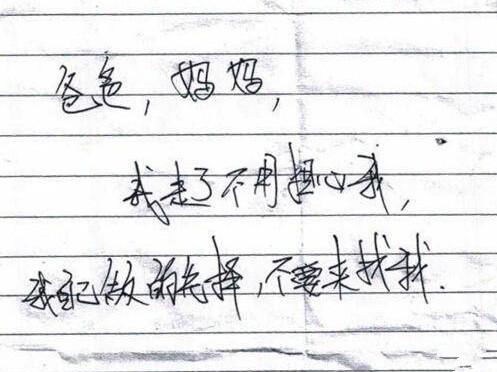 爸爸,妈妈,
我走了不用担心我,
我自己做的选择,不要来找我.